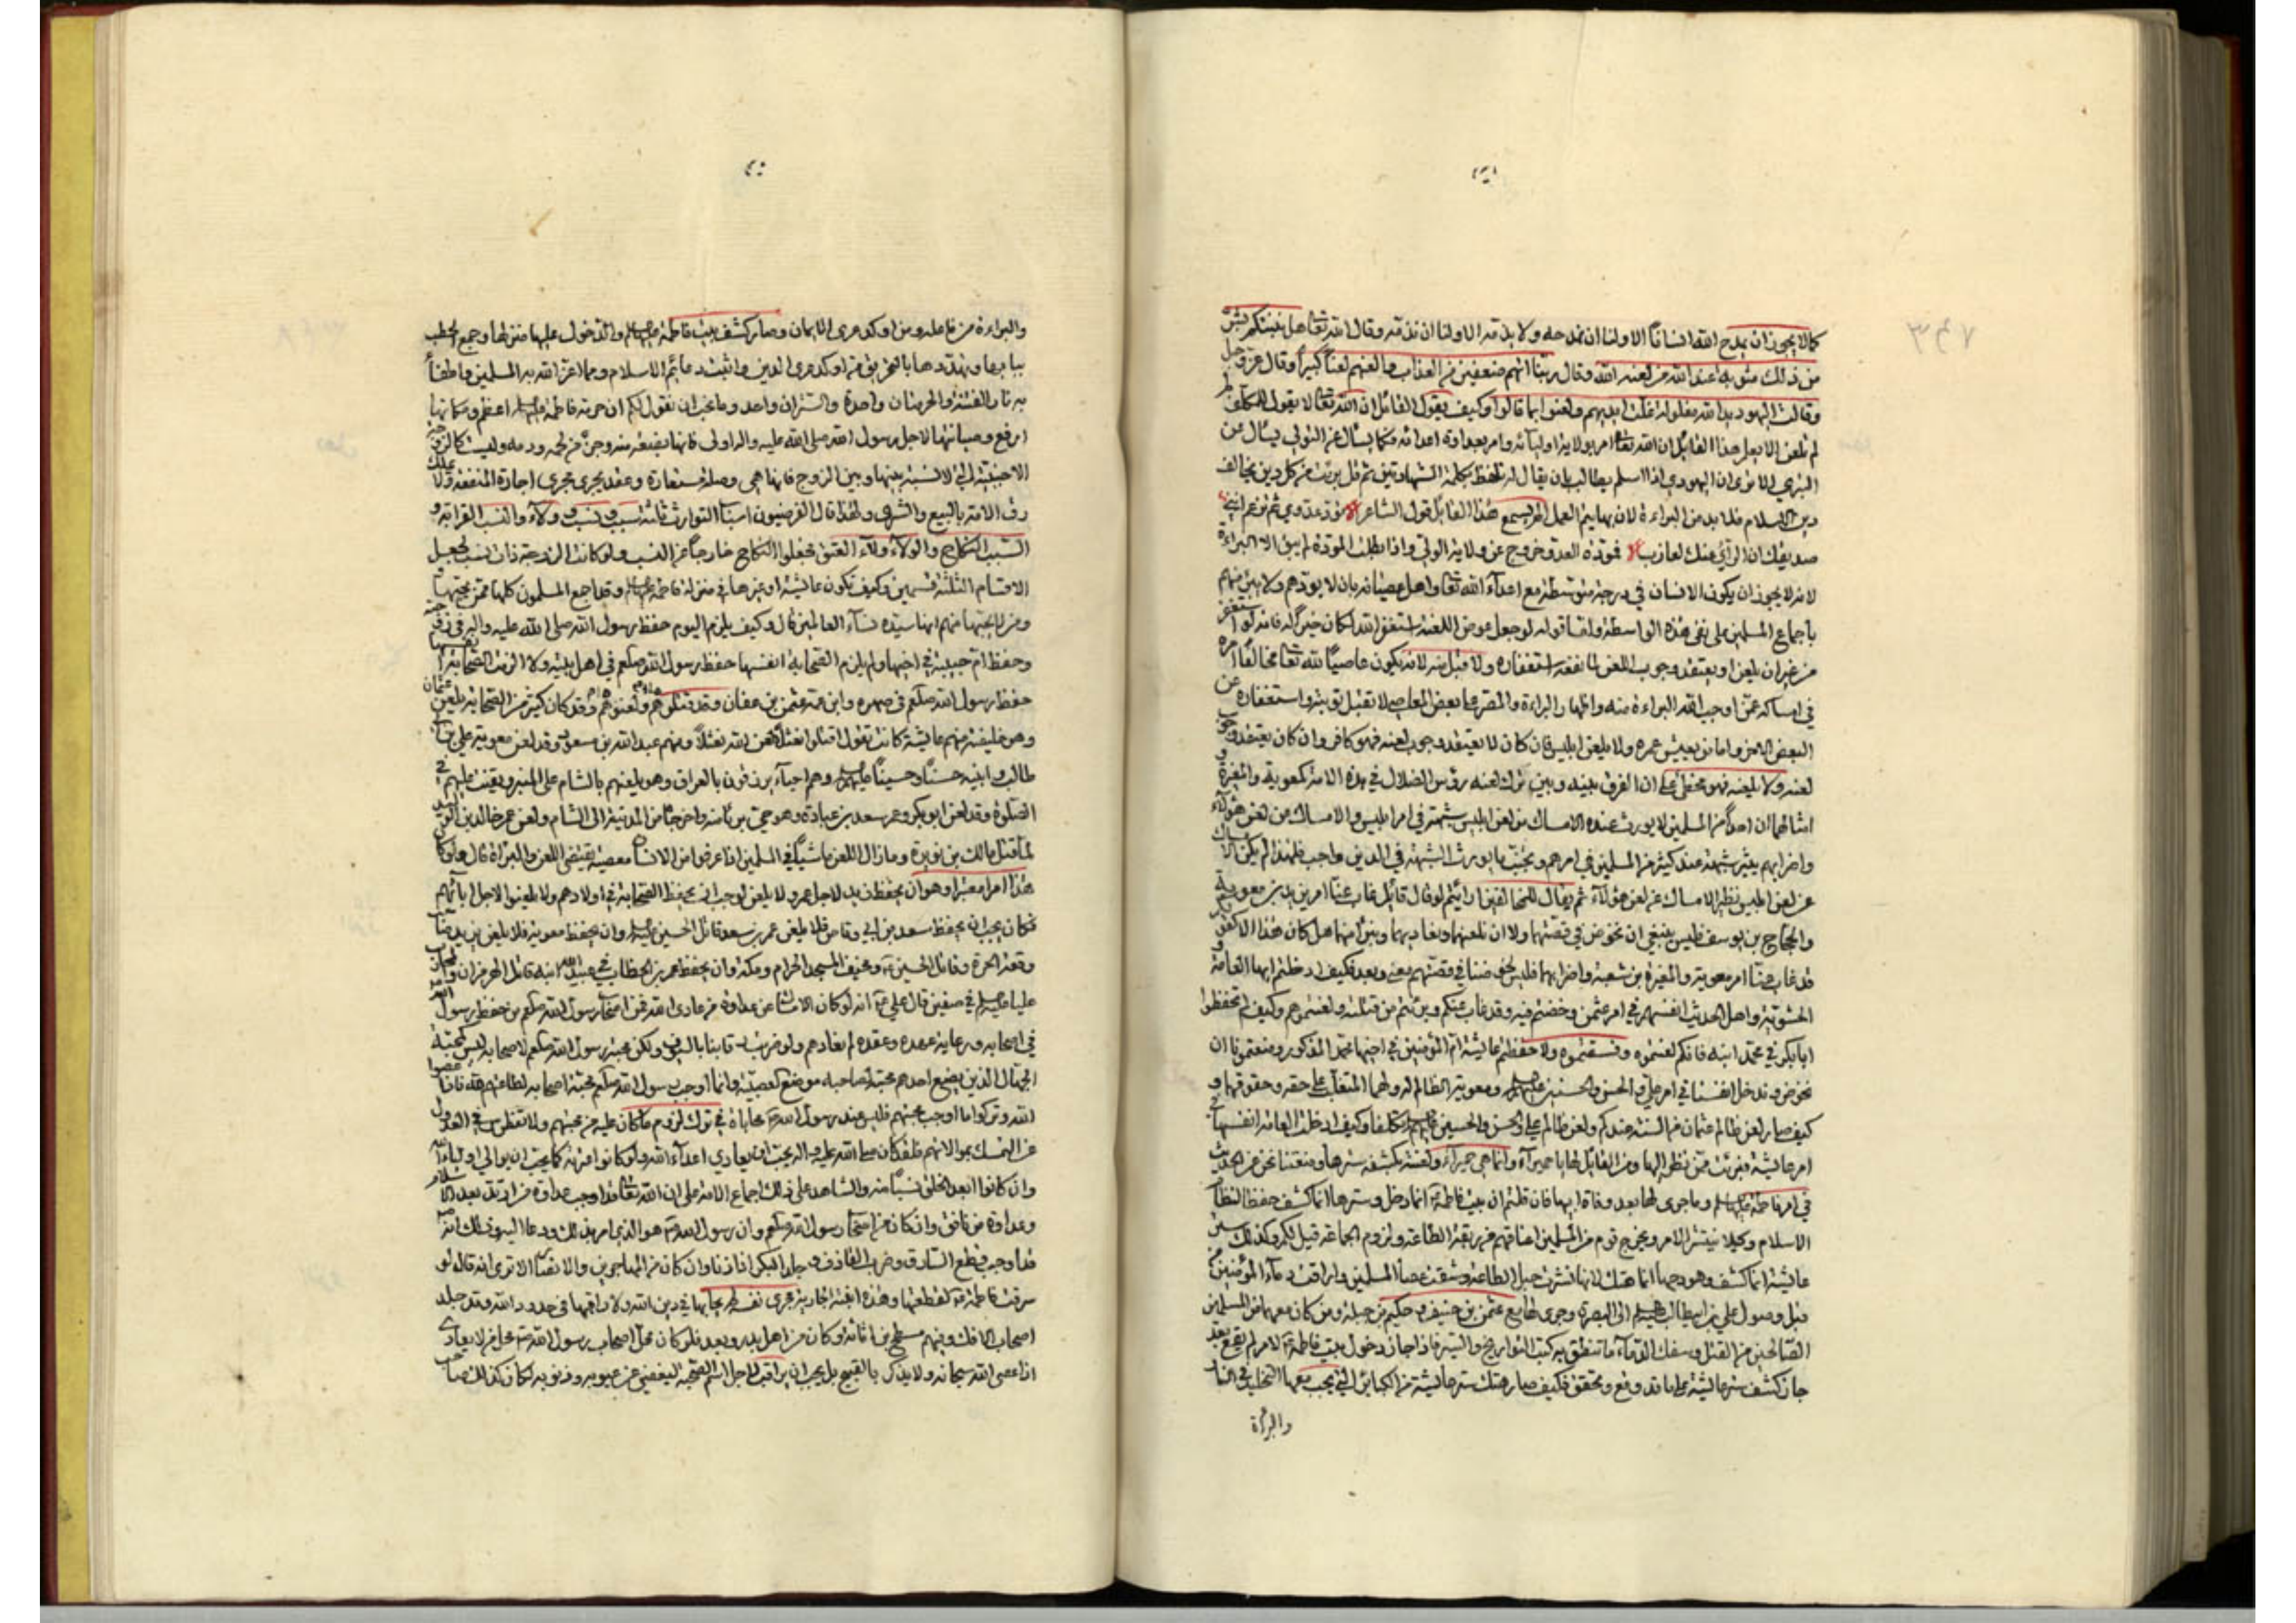 كما لا يجوز ان يمدح الله انسانا الا ولنا ان نمدحه ولا يذمه الا ولنا ان نذمه وقال الله تعالى هل انبئكم بشر
من ذلك مثوبة عند الله من لعنه الله وقال ربنا اتهم ضعفين من العذاب والعنهم لعنا كبيرا وقال عز وجل
وقالت اليهود يد الله مغلولة غلت ايديهم ولعنوا بما قالوا وكيف يقول القائل ان الله تعالى لا يقول للمكلف لم
لم تلعن الا يعلم هذا القائل ان الله تعالى امر بولاية اوليائه وامر بعداوة اعدائه فكما يسأل عن التولي يسأل عن
التبري الا ترى ان اليهودي اذا اسلم يطالب بان يقال له تلفظ بكلمة الشهادتين ثم قل برئت من كل دين يخالف
دين الاسلام فلا بد من البراءة لان بها يتم العمل الم يسمع هذا القائل قول الشاعر تود عدوي ثم تزعم انني
صديقك ان الرأي عنك لعازب فمودة العدو خروج عن ولاية الولي واذا بطلت المودة لم يبق الا البراءة
لانه لا يجوز ان يكون الانسان في درجة متوسطة مع اعداء الله تعالى واهل عصيانه بان لا يودهم ولا يبرأ منهم
باجماع المسلمين على نفي هذه الواسطة واما قوله لو جعل عوض اللعنة استغفر الله لكان خيرا له فانه لو استغفر
من غير ان يلعن او يعتقد وجوب اللعن لما نفعه استغفاره ولا قبل منه لانه يكون عاصيا لله تعالى مخالفا امره
في امساكه عمن اوجب الله البراءة منه واظهار البراءة والمصر على بعض المعاصي لا تقبل توبته واستغفاره عن
البعض الاخر واما من يعيش عمره ولا يلعن ابليس فان كان لا يعتقد وجوب لعنه فهو كافر وان كان يعتقد وجوب
لعنه ولا يلعنه فهو مخطئ على ان الفرق بينه وبين ترك لعنه رؤس الضلال في هذه الامة كمعوية والمغيرة و
امثالهما ان احدا من المسلمين لا يورث عنده الامساك من لعن ابليس شبهة في امر ابليس والامساك من لعن هؤلاء
واضرابهم يثير شبهة عند كثير من المسلمين في امرهم وتجنب ما يورث الشبهة في الدين واجب فلهذا لم يكن الامساك
عن لعن ابليس نظير الامساك عن لعن هؤلاء ثم يقال للمخالفين ارايتم لو قال قائل غاب عنا امر يزيد بن معوية
والحجاج بن يوسف فليس ينبغي ان نخوض في قصتهما ولا ان نلعنهما ونعاديهما ونبرأ منهما هل كان هذا الا كقولكم
قد غاب عنا امر معوية والمغيرة بن شعبة واضرابهما فليس لخوضنا في قصتهم معنى وبعد فكيف ادخلتم ايها العامة و
الحشوية واهل الحديث انفسهم في امر عثمن وخضتم فيه وقد غاب عنكم وبرئتم من قتلته ولعنتموهم وكيف لم تحفظوا
ابا بكر في محمد ابنه فانكم لعنتموه وفسقتموه ولا حفظتم عائشة ام المؤمنين في اخيها محمد المذكور ومنعتمونا ان
نخوض وندخل انفسنا في امر علي والحسن والحسين عليهم السلام ومعوية الظالم له ولهما المتغلب على حقه وحقوقهما و
كيف صار لعن ظالم عثمان من السنة عندكم ولعن ظالم علي والحسن والحسين عليهم السلام تكلفا وكيف ادخلت العامة انفسها في
امر عائشة فبرئت ممن نظر اليها ومن القائل لها يا حميراء وانما هي حميراء ولعنته بكشفه سترها ومنعتنا نحن من الحديث
في امر فاطمة عليها السلام وما جرى لها بعد وفاة ابيها فان قلتم ان بيت فاطمة ع انما دخل وسترها انما كشف حفظا لنظام
الاسلام وكيلا ينتشر الامر ويخرج قوم من المسلمين اعناقهم من ربقة الطاعة ولزوم الجماعة قيل لكم وكذلك ستر
عائشة انما كشف وهودجها انما هتك لانها نشرت حبل الطاعة وشقت عصا المسلمين واراقت دماء المؤمنين من
قبل وصول علي بن ابيطالب عليه السلام الى البصرة وجرى لها مع عثمن بن حنيف وحكيم بن جبلة ومن كان معهما من المسلمين
الصالحين من القتل وسفك الدماء ما تنطق به كتب التواريخ والسير فاذا جاز دخول بيت فاطمة ع لامر لم يقع بعد
جاز كشف ستر عائشة على ما قد وقع وتحقق فكيف صار هتك ستر عائشة من الكبائر التي يجب معها التخليد في النار
والبراءة
والبراءة من فاعله ومن اوكد عرى الايمان وصار كشف بيت فاطمة عليها السلام والدخول عليها منزلها وجمع حطب
ببابها وتهددها بالتحريق من اوكد عرى الدين واثبت دعائم الاسلام ومما اعز الله به المسلمين واطفأ
به نار الفتنة والحرمتان واحدة والستران واحد وما نحب ان نقول لكم ان حرمة فاطمة عليها السلام اعظم ومكانها
ارفع وصيانتها لاجل رسول الله صلى الله عليه واله اولى فانها بضعة منه وجزء من لحمه ودمه وليست كالزوجة
الاجنبية التي لا نسبة بينها وبين الزوج فانما هي وصلة مستعارة وعقد يجري مجرى اجارة المنفعة ولا كملك
رق الامة بالبيع والشرى ولهذا قال الفرضيون اسباب التوارث ثلثة سبب ونسب وولاء والنسب القرابة و
السبب النكاح والولاء ولاء العتق فجعلوا النكاح خارجا عن النسب ولو كانت الزوجة ذات نسب لجعل
الاقسام الثلثة قسمين وكيف تكون عائشة او غيرها في منزلة فاطمة عليها السلام وقد اجمع المسلمون كلهم من يحبها و
ومن لا يحبها منهم انها سيدة نساء العالمين قال وكيف يلزم اليوم حفظ رسول الله صلى الله عليه واله في زوجته
وحفظ ام حبيبة في اخيها ولم يلزم الصحابة انفسها حفظ رسول الله صلعم في اهل بيته ولا الزمت الصحابة انفسها
حفظ رسول الله صلعم في صهره وابن عمه عثمن بن عفان وقد قتلوهم ولعنوهم وقد كان كثير من الصحابة يلعن عثمان
وهو خليفة منهم عائشة كانت تقول اقتلوا نعثلا لعن الله نعثلا ومنهم عبد الله بن مسعود وقد لعن معوية علي بن ابي
طالب وابنيه حسنا وحسينا عليهم السلام وهم احياء يرزقون بالعراق وهو يلعنهم بالشام على المنبر ويقنت عليهم في
الصلوة وقد لعن ابو بكر وعمر سعد بن عبادة وهو حي برئا منه واخرجاه من المدينة الى الشام ولعن عمر خالد بن الوليد
لما قتل مالك بن نويرة وما زال اللعن فاشيا في المسلمين اذا عرفوا من الانسان معصية يقتضي اللعن والبراءة قال ولو كان
هذا امرا معتبرا وهو ان يحفظ زيد لاجل عمرو ولا يلعن لوجب ان تحفظ الصحابة في اولادهم ولا يلعنوا لاجل ابائهم
فكان يجب ان يحفظ سعد بن ابي وقاص فلا يلعن عمر بن سعد قاتل الحسين عليه السلام وان يحفظ معوية فلا يلعن يزيد صاحب
وقعة الحرة وقاتل الحسين ع ومخيف المسجد الحرام ومكة وان يحفظ عمر بن الخطاب في عبيد الله ابنه قاتل الهرمزان والمحارب
عليا عليه السلام في صفين قال على انه لو كان الامساك عن عداوة من عادى الله من اصحاب رسول الله صلعم من حفظ رسول الله
في اصحابه ورعاية عهده وعقده لم نعادهم ولو ضربت رقابنا بالسيوف ولكن محبة رسول الله صلعم لاصحابه ليس كمحبة
الجهال الذين يضع احدهم محبة لصاحبه موضع العصبية وانما اوجب رسول الله صلعم محبة اصحابه لطاعتهم لله فاذا عصوا
الله وتركوا ما اوجب محبتهم فليس عند رسول الله ص محاباة في ترك لزوم ما كان عليه من محبتهم ولا تغطرس في العدول
عن التمسك بموالاتهم فلقد كان صلى الله عليه واله يحب ان يعادي اعداء الله ولو كانوا عترته كما يحب ان يوالي اولياء الله
وان كانوا ابعد الخلق نسبا منه والشاهد على ذلك اجماع الامة على ان الله تعالى قد اوجب عداوة من ارتد بعد الاسلام
وعداوة من نافق وان كان من اصحاب رسول الله صلعم وان رسول الله ص هو الذي امر بذلك ودعا اليه وذلك انه ص
قد اوجب قطع السارق وضرب القاذف وجلد البكر اذا زنا وان كان من المهاجرين والانصار الا ترى انه قال لو
سرقت فاطمة ع لقطعتها وهذه ابنته الجارية مجرى نفسه لم يحابها في دين الله ولا راقبها في حدود الله وقد جلد
اصحاب الافك ومنهم مسطح بن اثاثة وكان من اهل بدر وبعد فلو كان محل اصحاب رسول الله ص محل من لا يعادى
اذا عصى الله سبحانه ولا يذكر بالقبيح بل يجب ان يراقب لاجل اسم الصحبة ليغضى عن عيوبه وذنوبه لكان كذلك صاحب